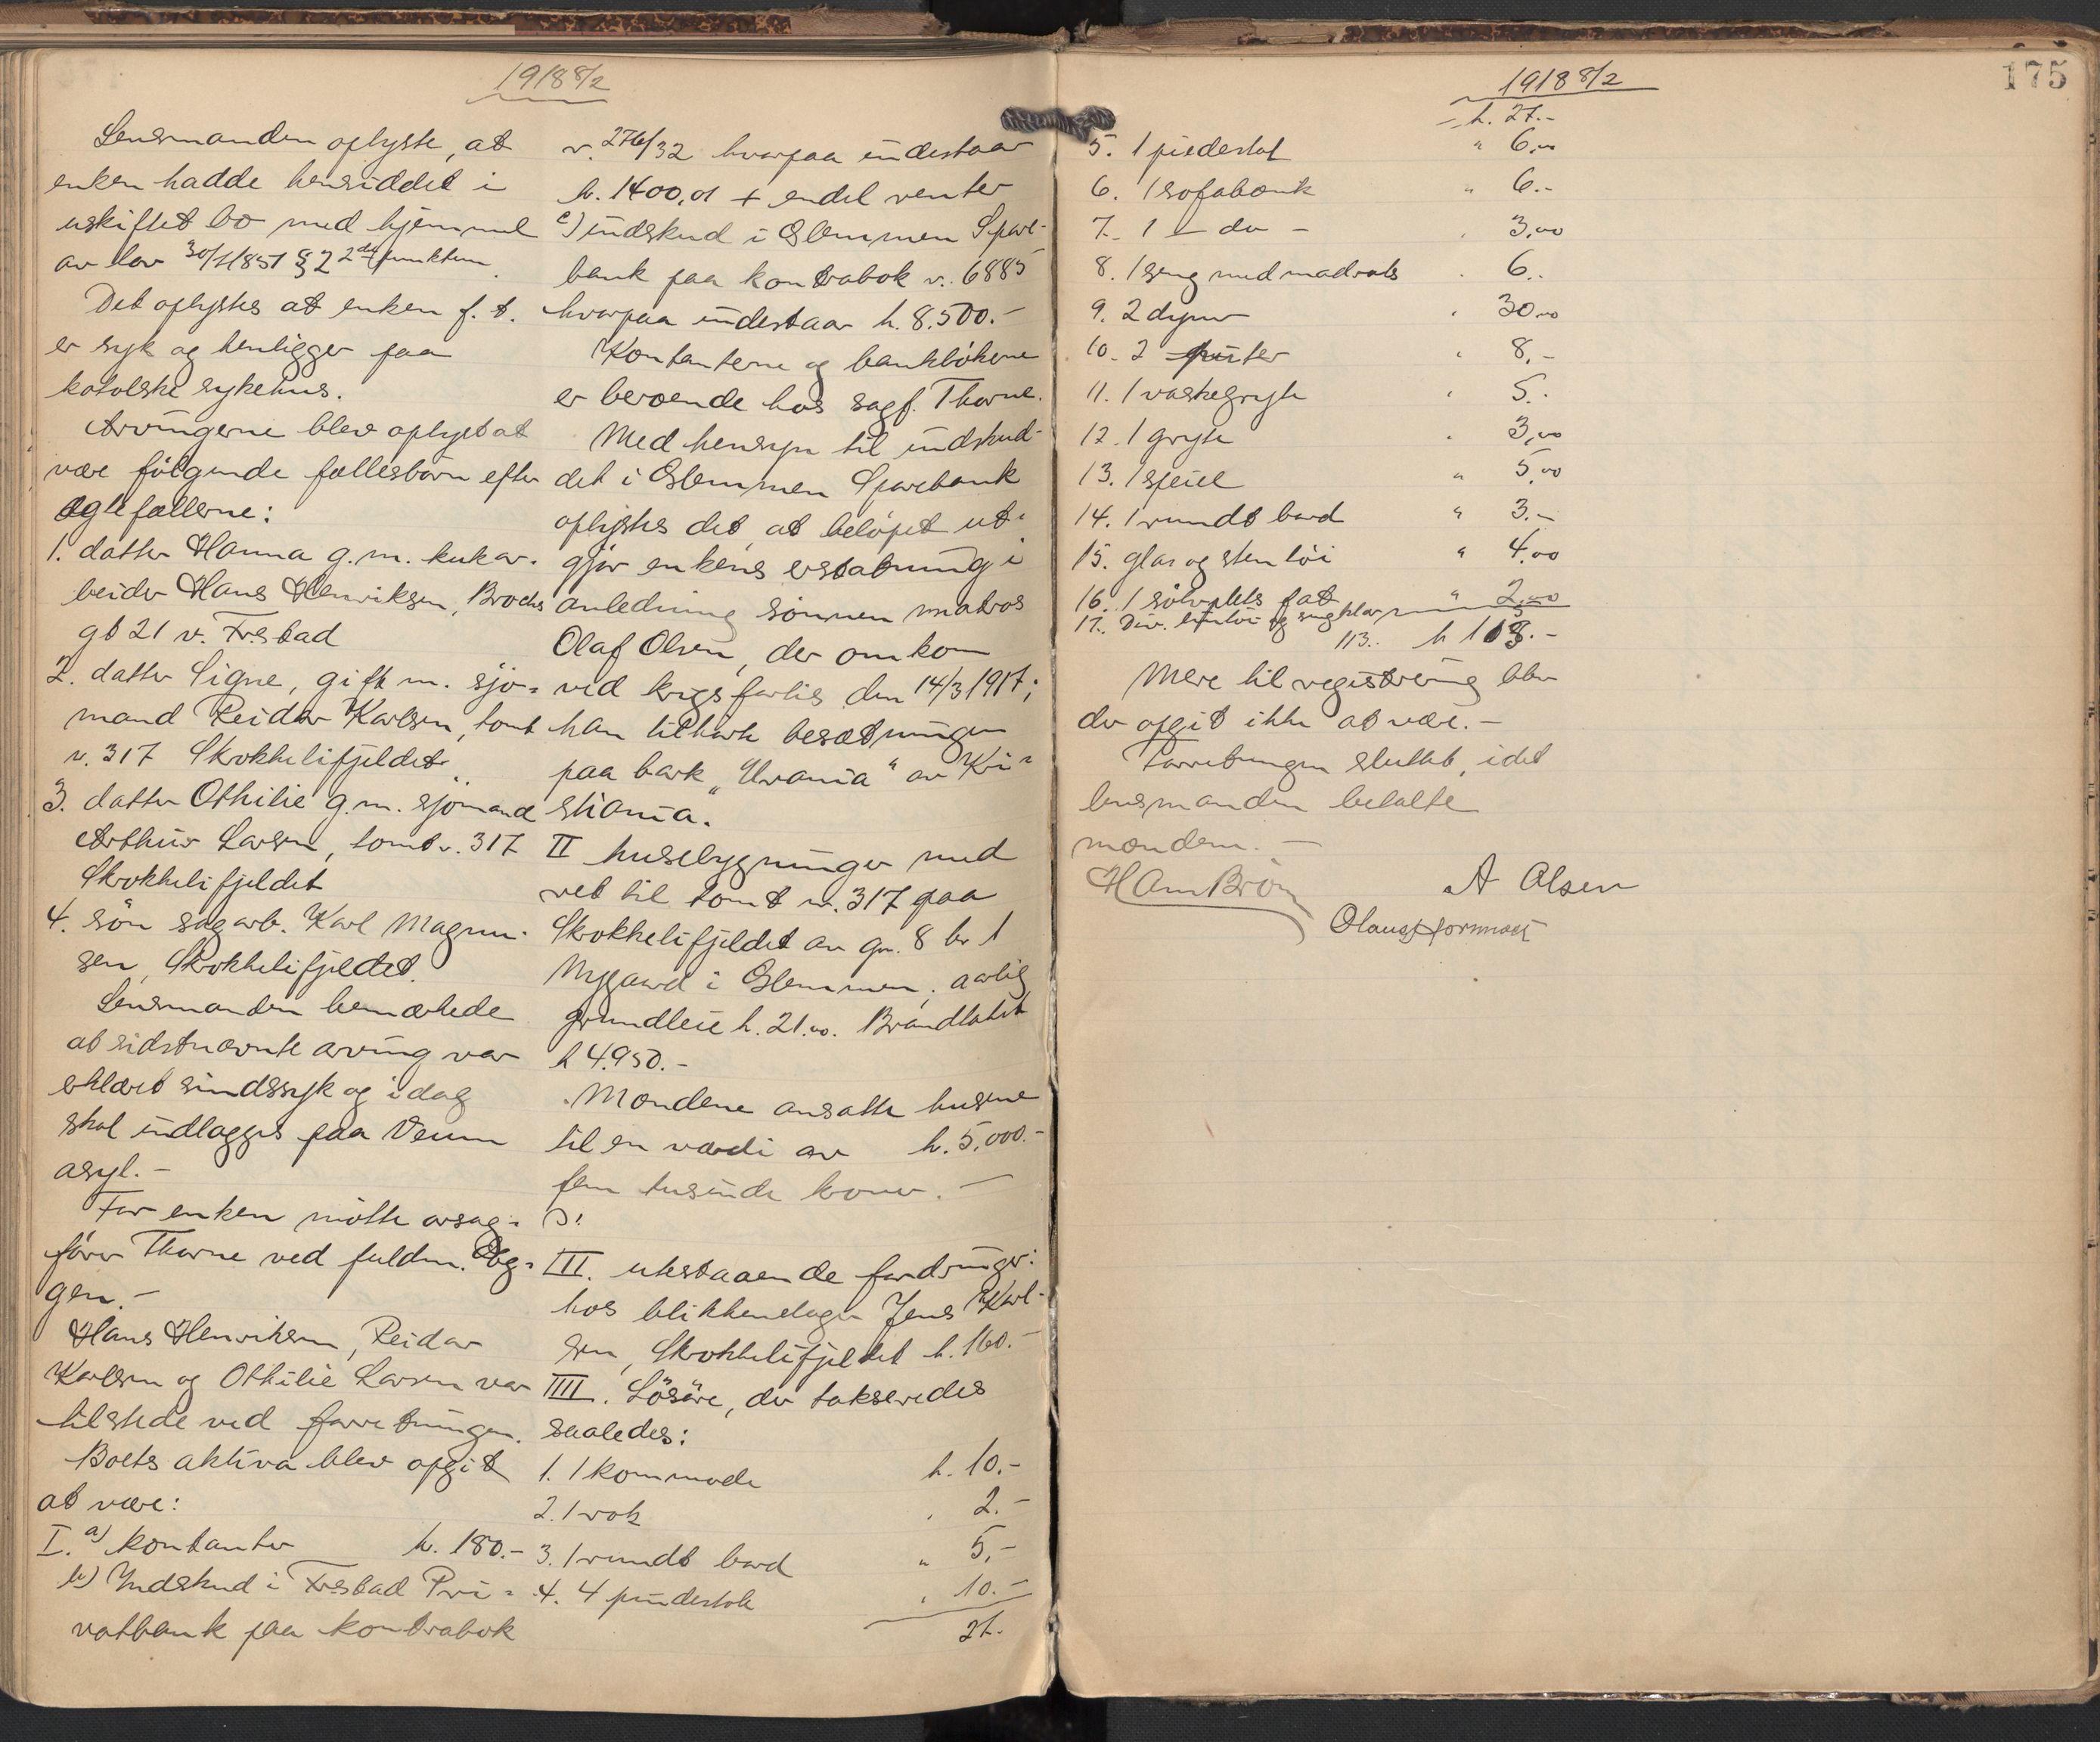 1918 8/2
Lensmanden oplyste, at
enken hadde hensiddet i
uskiftet bo med hjemmel
av lov 30/7 1851 § 2 2det punktum.
Det oplystes at enken f. t.
er syk og henligger paa
katolske sykehus.
Arvingerne blev oplyst at
være følgende fællesbörn efter
egtefællerne:
1. datter Hanna g. m. kukar-
beider Hans Henriksen, Brochs
gt 21 v. Fr.stad
2. datter Signe, gift m. sjö-
mand Reidar Karlsen, tomt
nr. 317 Skrokkelifjeldet
3. datter Othilie g. m. sjömand
Arthur Larsen, tomt nr. 317
Skrokkelifjeldet
4. sön sagarb. Karl Magnu-
sen, Skrokkelifjeldet.
Lensmanden bemærkede
at sidstnævnte arving var
erklært sindssyk og idag
skal indlægges paa Veum
asyl. -
For enken mötte orsag-
förer Thorne ved fuldm.
gen. -
Hans Henriksen, Reidar
Karlsen og Othilie Larsen var
tilstede ved forretningen.
Boets aktiva blev opgit
at være:
I. a) kontanter k. 180.-
b) Indskud i Fr.stad Pri-
vatbank paa kontrabok
nr. 276/32 hvorpaa indestaar
k. 1400,01 + endel renter
c) indskud i Glemmen Spare-
bank paa kontrabok nr. 6885
hvorpaa indestaar k. 8.500.-
Kontanterne og bankbökerne
er beroende hos sagf. Thorne.
Med hensyn til indskud-
det i Glemmen Sparebank
oplystes det, at belöpet ut-
gjör enkens erstatning i
anledning sönnen matros
Olaf Olsen, der omkom
ved krigsforlis den 14/3 1917;
han tilhørte besætningen
paa bark „Urania" av Kri-
stiania.
II husebygninger med
ret til tomt nr. 317 paa
Skrokkelifjeldet av gn. 8 br 1
Nygaard i Glemmen, aarlig
grundleie k. 21.00. Brandtakst
k 4.950.-
Mændene ansatte husene
til en værdi av k. 5.000.-
fem tusinde kroner. -
III. utestaaende fordringer:
hos blikkenslager Jens Karl-
sen, Skrokkelifjeldet k. 160.-
IIII. Lösöre, der takseredes
saaledes:
1. 1 kommode k. 10.-
2. 1 rok " 2.-
3. 1 rundt bord " 5,-
4. 4 pindestole " 10.-
27.-
175
1918 8/2
k. 27.-
5. 1 piedestal " 6,00
6. 1 sofabænk " 6.-
7. 1 - do - " 3,00
8. 1 seng med madrats " 6..
9. 2 dyner " 30,00
10. 2 puter " 8.-
11. 1 vaskegryte " 5.-
12. 1 gryte " 3,00
13. 1 speil " 5,00
14. 1 rundt bord " 3.-
15. glas og stentöi " 4,00
16. 1 sölvplets fat " 2,00
17. Div. lintöi og sengklær
113.. k 118.-
Mere til registrering blev
der opgit ikke at være. -
Forretningen sluttet, idet
lensmanden betalte
mændene. -
A Olsen